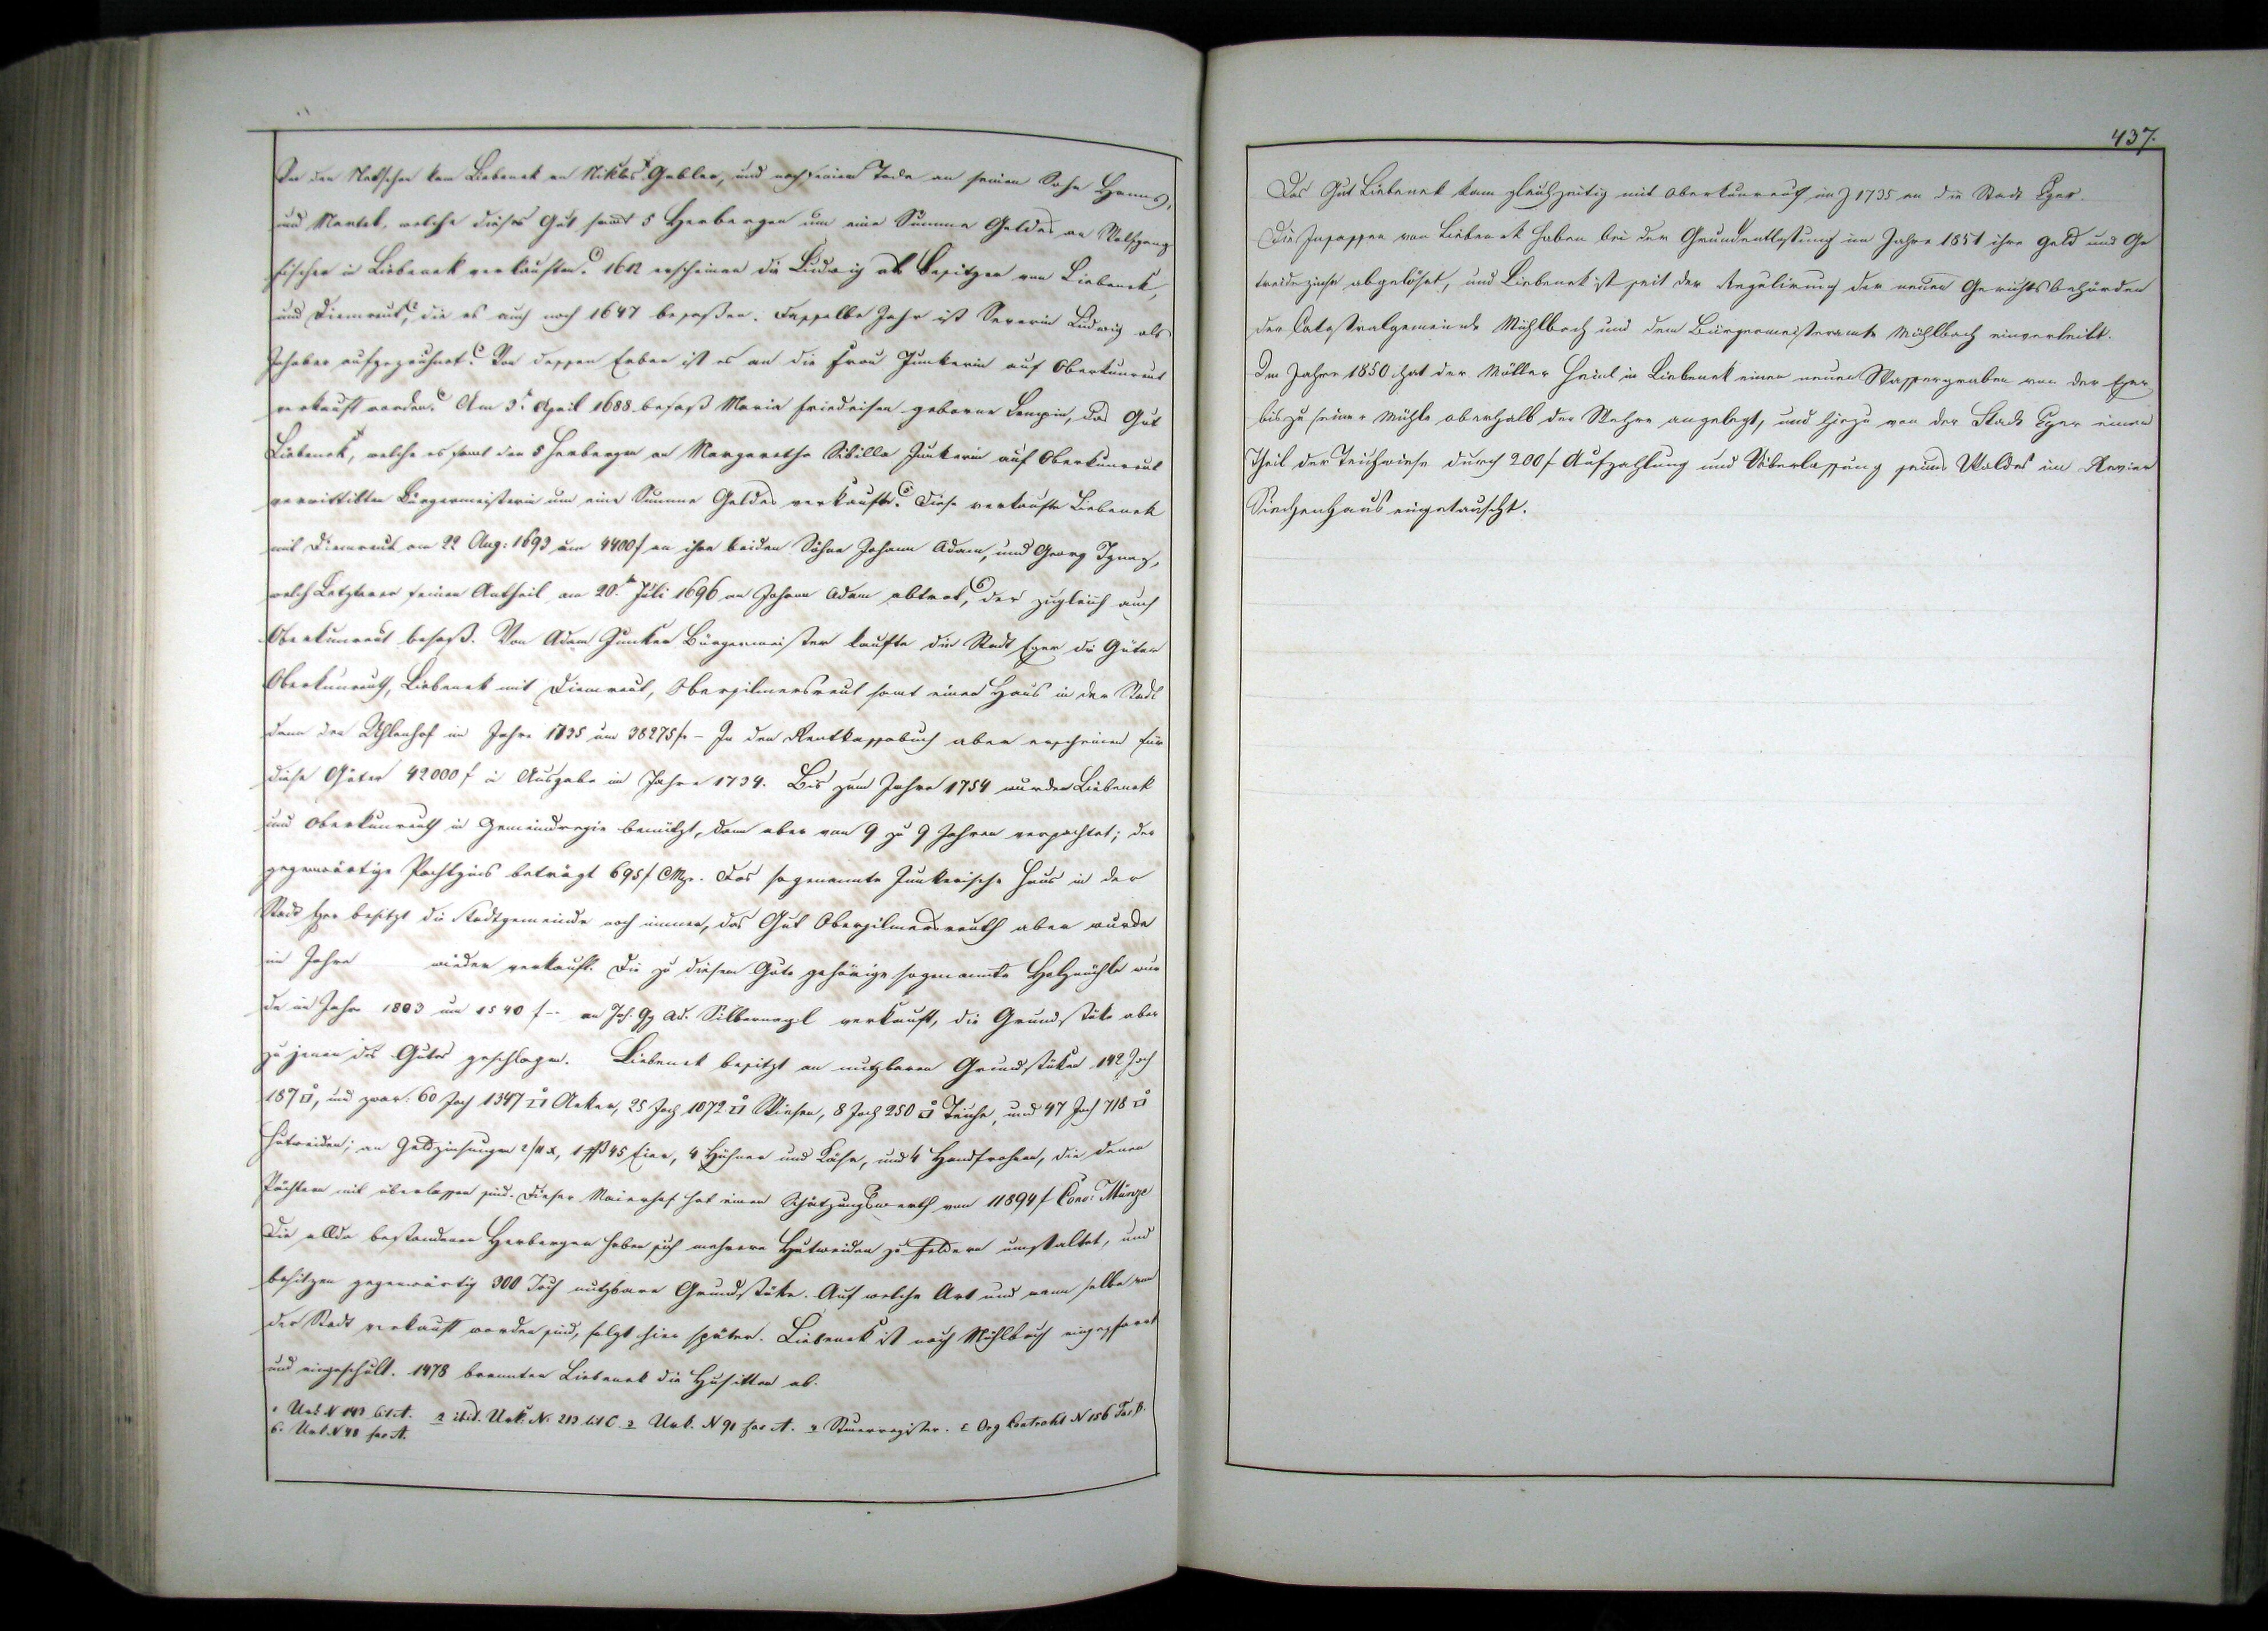 Von den kam Liebenek an Niklas Gabler, und nach seinem Tode an seinen Sohn Hanns,
und Martel, welche dieses Gut samt 5 Herbergen um eine Summe Geldes an Wolfgang
Fischer in Liebenek verkauften. 1612 erscheinen die Ludwig als Besitzer von Liebenek,
und Diemreut, die es auch noch 1647 besaßen. Dasselbe Jahr ist Severin Ludwig als
Inhaber aufgezeichnet. Von dessen Erben ist es an die Frau Junkerin auf Oberkunreut
verkauft worden. Am 3t. April 1688 besaß Maria Friedrisen geborne das Gut
Liebenek, welche es samt den 5 Herbergen an Margaretha Sibilla Junkerin auf Oberkunreut
verwittibten Bürgermeisterin um eine Summe Geldes verkaufte. Diese verkaufte Liebenek
mit Diemreut am 22 Aug: 1693 um 4400 f an ihre beiden Söhne Johann Adam, und Georg Ignaz,
welch Letzterer seinen Antheil am 20.ten Juli 1696 an Johann Adam abtrat, 6) der zugleich auch
Oberkunreut besaß. Von Adam Junker Bürgermeister kaufte die Stadt Eger die Güter
Oberkunreuth, Liebenek mit Diemreut, Oberpilmersreut samt einen Haus in der Stadt
dann den im Jahre 1735 um 38275 f – In den Rentkassabuch aber erscheinen für
diese Güter 42000 f in Ausgabe im Jahre 1734. Bis zum Jahre 1754 wurden Liebenek
und Oberkunreuth in Gemeindregie benützt, dann aber von 9 zu 9 Jahren verpachtet; der
gegenwärtige Pachtzins beträgt 695 f CMze. Das sogenannte Junkerische Haus in der
Stadt Eger besitzt die Stadtgemeinde noch immer, das Gut Oberpilmersreuth aber wurde
im Jahre wieder verkauft. Die zu diesem Gute gehörige sogenannte Holzmühle wur
de im Jahre 1803 um 1540 f -- an Joh. Gg Ad. Silbernagl verkauft, die Grundstüke aber
zu jenen des Gutes geschlagen. Liebenek besitzt an nutzbaren Grundstüken 142 Joch
187 □°, und zwar: 60 Joch 1347 □° Aeker, 25 Joch 1072 □° Wiesen, 8 Joch 250 □° Teiche, und 47 Joch 718 □°
Hutweiden; an Geldzinsungen 45 Eier, 4 Hühner und Käse, und 4 Handfrohnen, die denen
Pächtern mit überlassen sind. Dieser Maierhof hat einen Schätzungswerth von 11894 f Conv: Münze
Die allda bestandenen Herbergen haben sich mehrere Hutweiden zu Feldern umstaltet, und
besitzen gegenwärtig 300 Joch nutzbare Grundstüke. Auf welche Art und wann selbe von
der Stadt verkauft worden sind, folgt hier später. Liebenek ist nach Mühlbach eingepfarrt
und eingeschult. 1478 brannten Liebenek die Husitten ab.
1 Urk N 143 lit. A. 2 ibid. Urk. N. 213 lit C 3 Urk. N 91 fas A. 4 Steuerregister. 5 Org Contrakt N 156 Fas B.
6. Urk. N 40 fas A.
437.
Das Gut Liebenek kam gleichzeitig mit Oberkunreut im J 1735 an die Stadt Eger.
Die Insassen von Liebenek haben bei der Grundentlastung im Jahre 1851 ihre Geld und Ge
treidezinse abgelöset, und Liebenek ist seit der Regulirung der neuen Gerichtsbehörden
der Catastralgemeinde Mühlbach und dem Bürgermeisteramte Mühlbach einverleibt.
Im Jahre 1850 hat der Müller Heinl in Liebenek einen neuen Wassergraben von der Eger
bis zu seiner Mühle oberhalb der Wehre angelegt, und hiezu von der Stadt Eger einen
Theil der Teichwiese durch 200 f Aufzahlung und Überlassung seines Waldes im Revier
Siechenhaus eingetauscht.